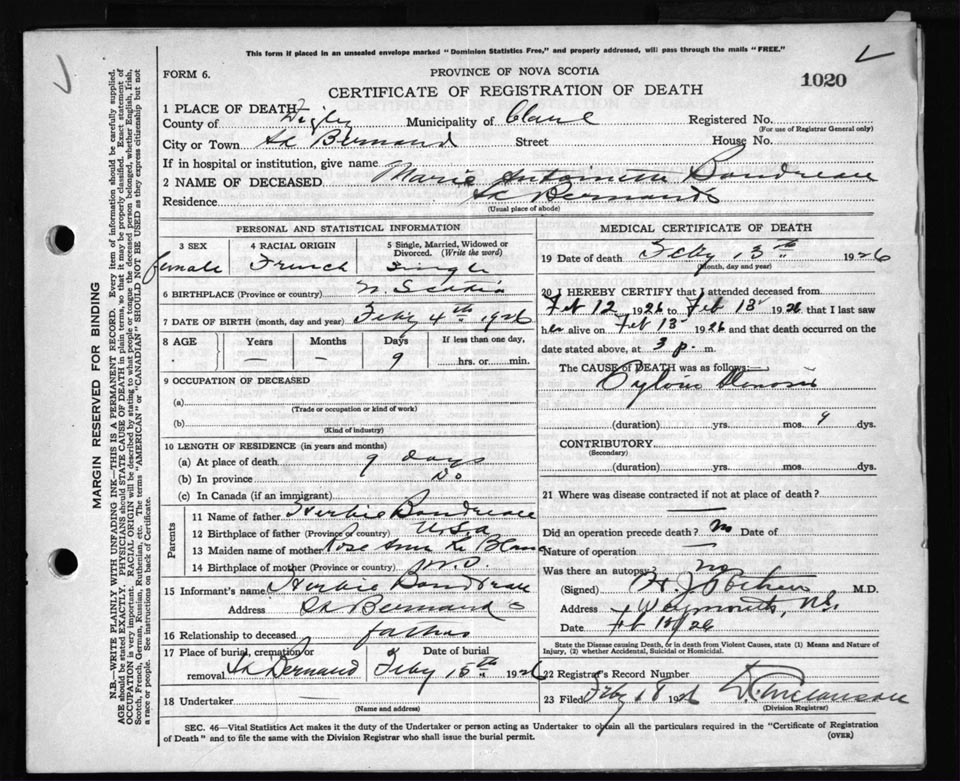 This form if placed in an unsealed envelope marked "Dominion Statistics Free," and properly addressed, will pass through the mails "FREE."
FORM 6.
PROVINCE OF NOVA SCOTIA
1020
CERTIFICATE OF REGISTRATION OF DEATH
1 PLACE OF DEATH
County of Digby Municipality of Clare Registered No.
(For use of Registrar General only)
City or Town St Bernard Street House No.
If in hospital or institution, give name
2 NAME OF DECEASED Marie Antoinette Boudreau
Residence St Bernards
(Usual place of abode)
PERSONAL AND STATISTICAL INFORMATION
3 SEX 4 RACIAL ORIGIN 5 Single, Married, Widowed or Divorced. (Write the word)
female French Single
6 BIRTHPLACE (Province or country) N. Scotia
7 DATE OF BIRTH (month, day and year) Feby 4th 1926
8 AGE Years Months Days If less than one day,
— — 9 hrs. or min.
9 OCCUPATION OF DECEASED
(a)
(Trade or occupation or kind of work)
(b)
(Kind of industry)
10 LENGTH OF RESIDENCE (in years and months)
(a) At place of death 9 days
(b) In province Do
(c) In Canada (if an immigrant)
Parents
11 Name of father Herbie Boudreau
12 Birthplace of father (Province or country) U.S.a
13 Maiden name of mother Rose Ann Le Blanc
14 Birthplace of mother (Province or country)
15 Informant's name Herbie Boudreau
Address St Bernards
16 Relationship to deceased father
17 Place of burial, cremation or removal St Bernard Date of burial Feby 15th 1926
18 Undertaker —
(Name and address)
MEDICAL CERTIFICATE OF DEATH
19 Date of death Feby 13th 1926
(Month, day and year)
20 I HEREBY CERTIFY that I attended deceased from
Feb 12 1926 to Feb 13 1926 that I last saw
her alive on Feb 13 1926 and that death occurred on
date stated above, at 3 p. m.
The CAUSE of DEATH was as follows:
Pyloric Stenosis
(duration) yrs. mos. 9 dys.
CONTRIBUTORY
(Secondary)
(duration) yrs. mos. dys.
21 Where was disease contracted if not at place of death?
Did an operation precede death? no Date of
Nature of operation —
Was there an autopsy? no
(Signed) M.D.
Address Weymouth, N.S.
Date
State the Disease causing Death, or in death from Violent Causes, state (1) Means and Nature of
Injury, (2) whether Accidental, Suicidal or Homicidal.
22 Registrar's Record Number
23 Filed Feby 18 1926
(Division Registrar)
SEC. 46—Vital Statistics Act makes it the duty of the Undertaker or person acting as Undertaker to obtain all the particulars required in the "Certificate of Registration
of Death" and to file the same with the Division Registrar who shall issue the burial permit.
(OVER)
MARGIN RESERVED FOR BINDING
N.B.—WRITE PLAINLY WITH UNFADING INK—THIS IS A PERMANENT RECORD. Every item of information should be carefully supplied.
AGE should be stated EXACTLY. PHYSICIANS should STATE CAUSE OF DEATH in plain terms, so that it may be properly classified. Exact statement of
OCCUPATION is very important. RACIAL ORIGIN will be described by stating to what people or tongue the deceased person belonged, whether English, Irish,
Scotch, French, German, Russian, Ruthenian, etc. The terms "AMERICAN" or "CANADIAN" SHOULD NOT BE USED as they express citizenship but not
a race or people. See instructions on back of Certificate.